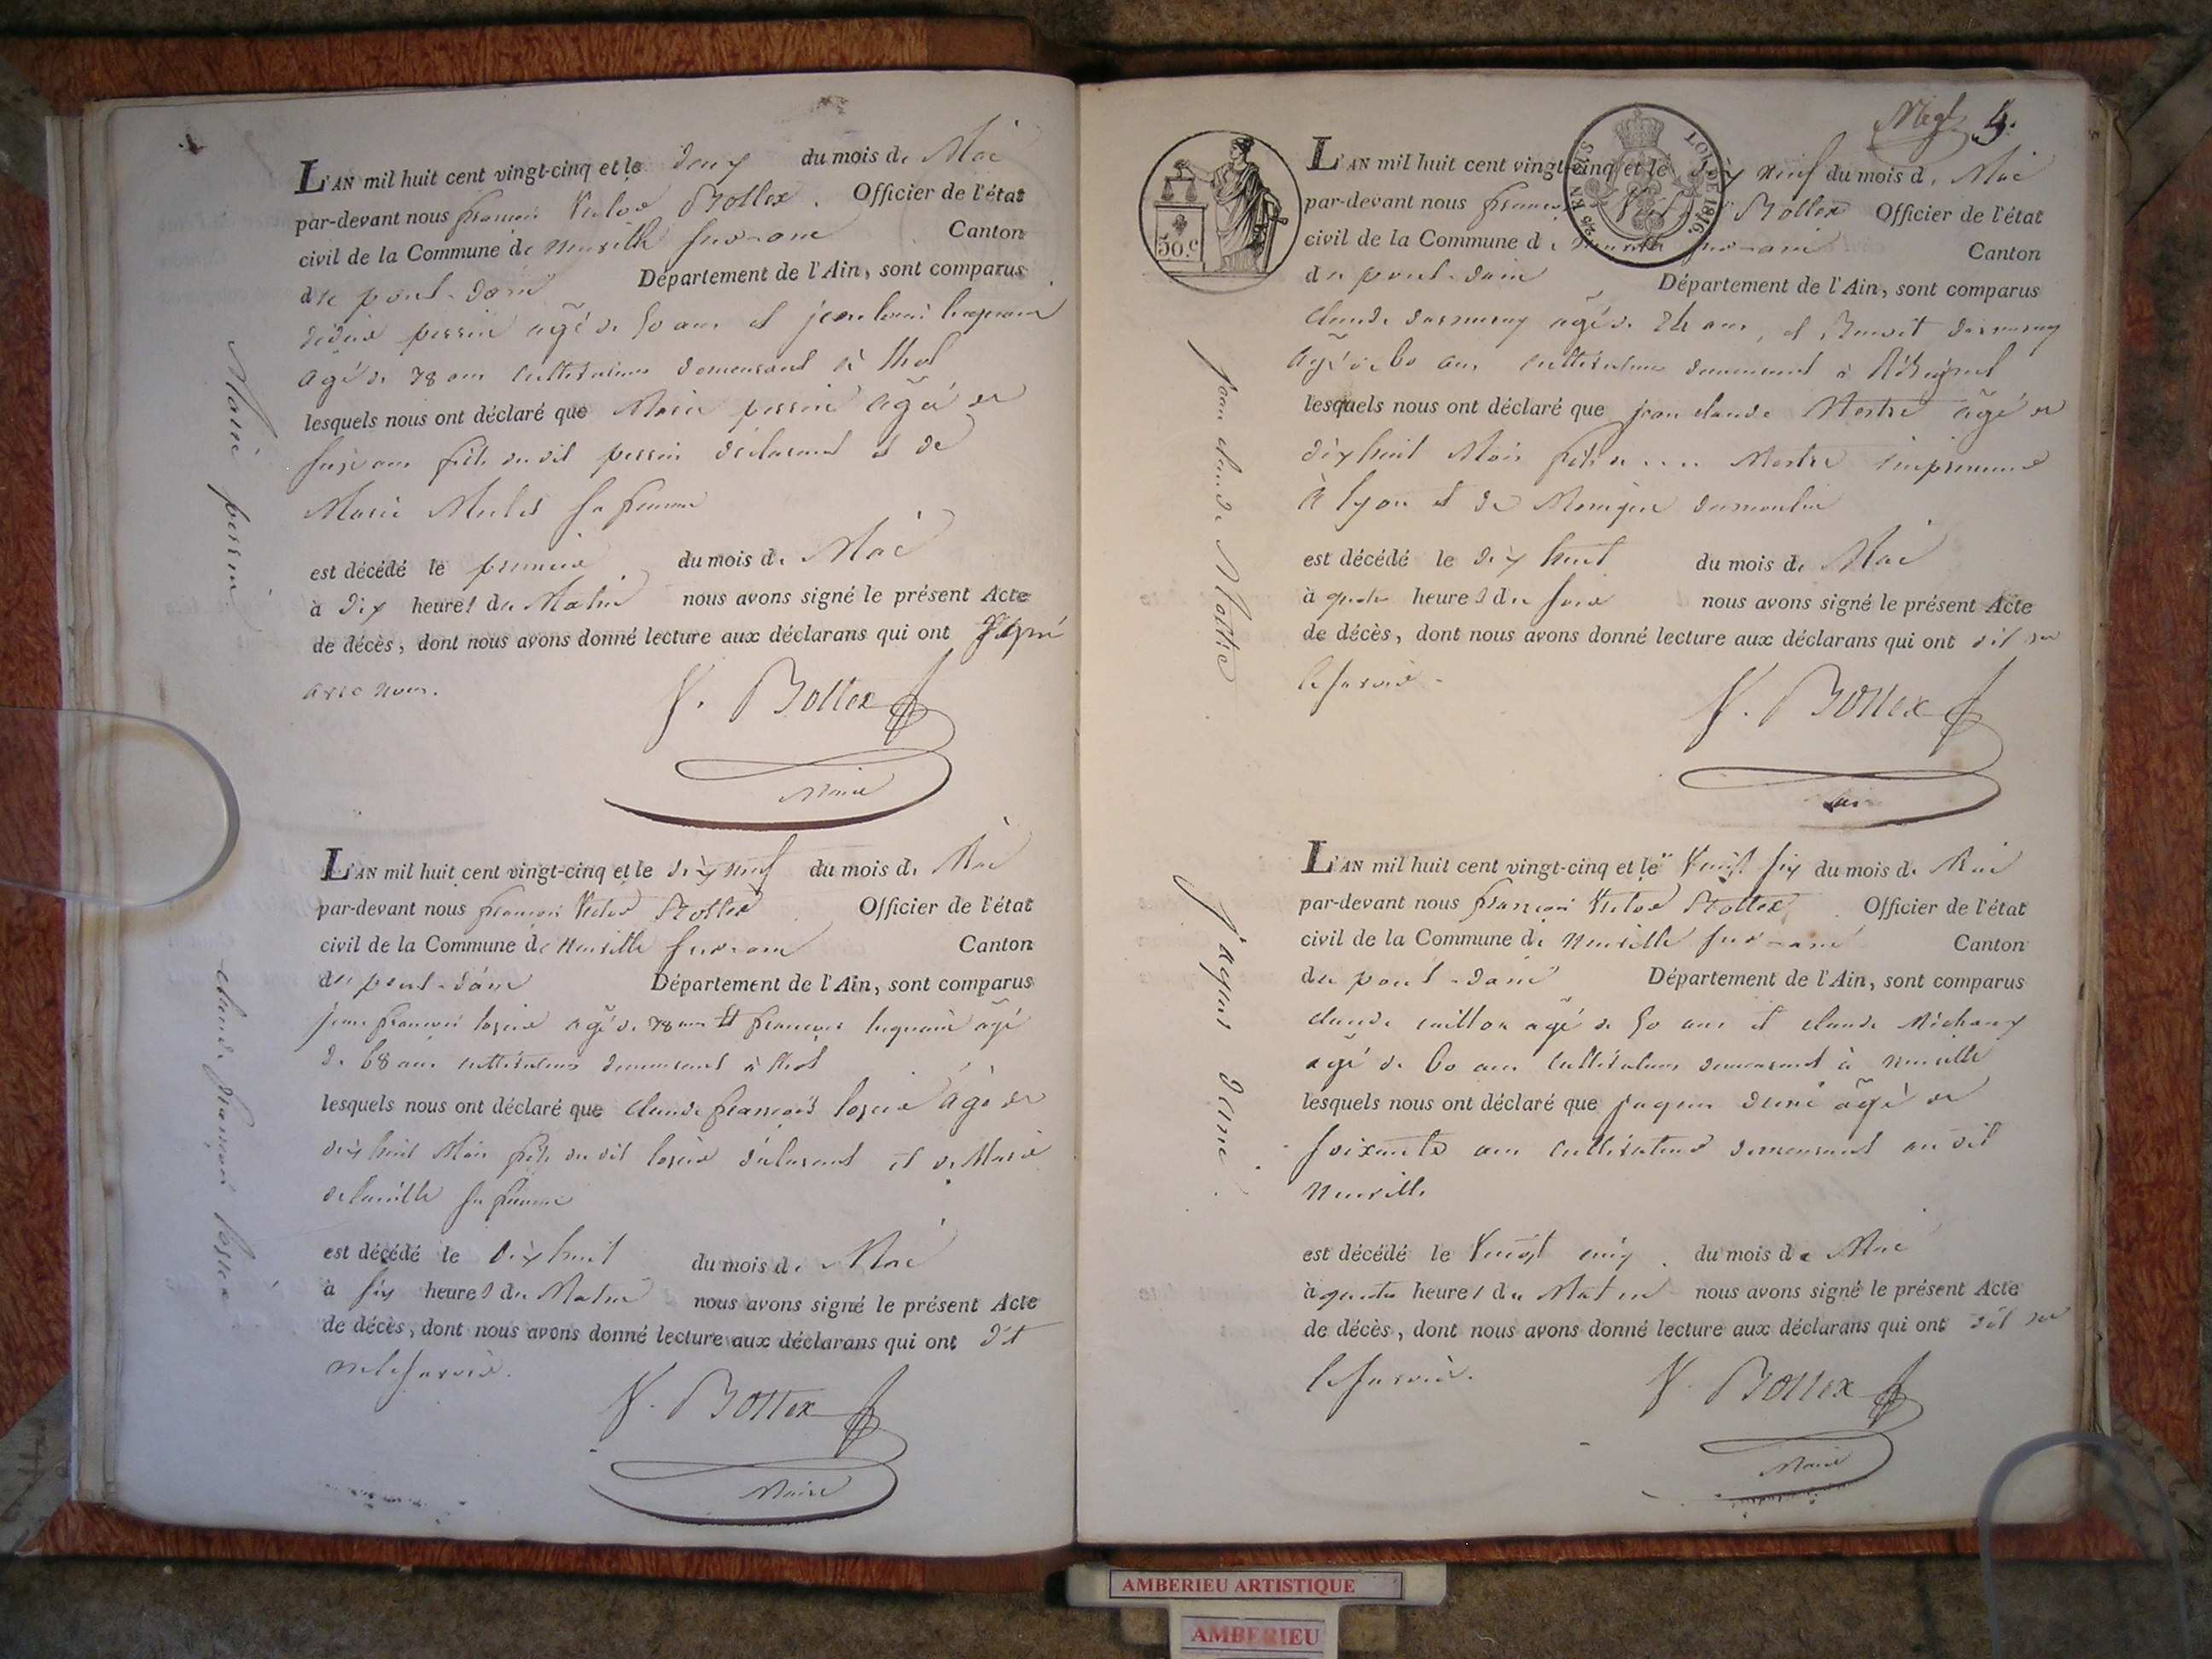 L'AN mil huit cent vingt-cinq et le deux du mois de Mai
par-devant nous françois Victor Bottex. Officier de l'état
civil de la Commune de neuville sur-ain Canton
de pont-dain Département de l'Ain, sont comparus
perrin agé de 50 ans et jean louis
agé de 78 ans cultivateurs demeurant à thol
lesquels nous ont déclaré que Marie perrin agée de
ans fille du dit perrin déclarant et de
Marie sa femme
est décédé le premier du mois de Mai
à dix heures du Matin nous avons signé le présent Acte
de décès, dont nous avons donné lecture aux déclarans qui ont signé
avec nous.
V. Bottex
Maire
Marie perrin
L'AN mil huit cent vingt-cinq et le dix neuf du mois de Mai
par-devant nous françois Victor Bottex Officier de l'état
civil de la Commune de neuville sur-ain Canton
du pont-dain Département de l'Ain, sont comparus
jean françois agé de 78 ans et françois agé
de 68 ans cultivateurs demeurant à thol
lesquels nous ont déclaré que claude françois agé de
dix huit Mois fils du dit déclarant et de Marie
sa femme
est décédé le dix huit du mois de Mai
à six heures du Matin nous avons signé le présent Acte
de décès, dont nous avons donné lecture aux déclarans qui ont dit
ne le savoir.
V. Bottex
Maire
claude françois
5.
50.c
LOI DE 1816.
L'AN mil huit cent vingt-cinq et le dix neuf du mois de Mai
par-devant nous françois Victor Bottex Officier de l'état
civil de la Commune de neuville sur-ain Canton
du pont-dain Département de l'Ain, sont comparus
claude agé de ans, et Benoit
agé de 60 ans cultivateurs demeurant à
lesquels nous ont déclaré que jean claude agé de
dix huit Mois fils de .... imprimeur
à lyon et de Monique dumoulin
est décédé le dix huit du mois de Mai
à quatre heures du soir nous avons signé le présent Acte
de décès, dont nous avons donné lecture aux déclarans qui ont dit ne
le savoir.
V. Bottex
jean claude
L'AN mil huit cent vingt-cinq et le vingt six du mois de Mai
par-devant nous françois Victor Bottex Officier de l'état
civil de la Commune de neuville sur-ain Canton
du pont-dain Département de l'Ain, sont comparus
claude agé de 50 ans et claude Michaux
agé de 60 ans cultivateurs demeurant à neuville
lesquels nous ont déclaré que jaques agé de
soixante ans cultivateur demeurant au dit
neuville
est décédé le vingt cinq du mois de Mai
à quatre heures du Matin nous avons signé le présent Acte
de décès, dont nous avons donné lecture aux déclarans qui ont dit ne
le savoir.
V. Bottex
Maire
jaques
AMBERIEU ARTISTIQUE
AMBERIEU